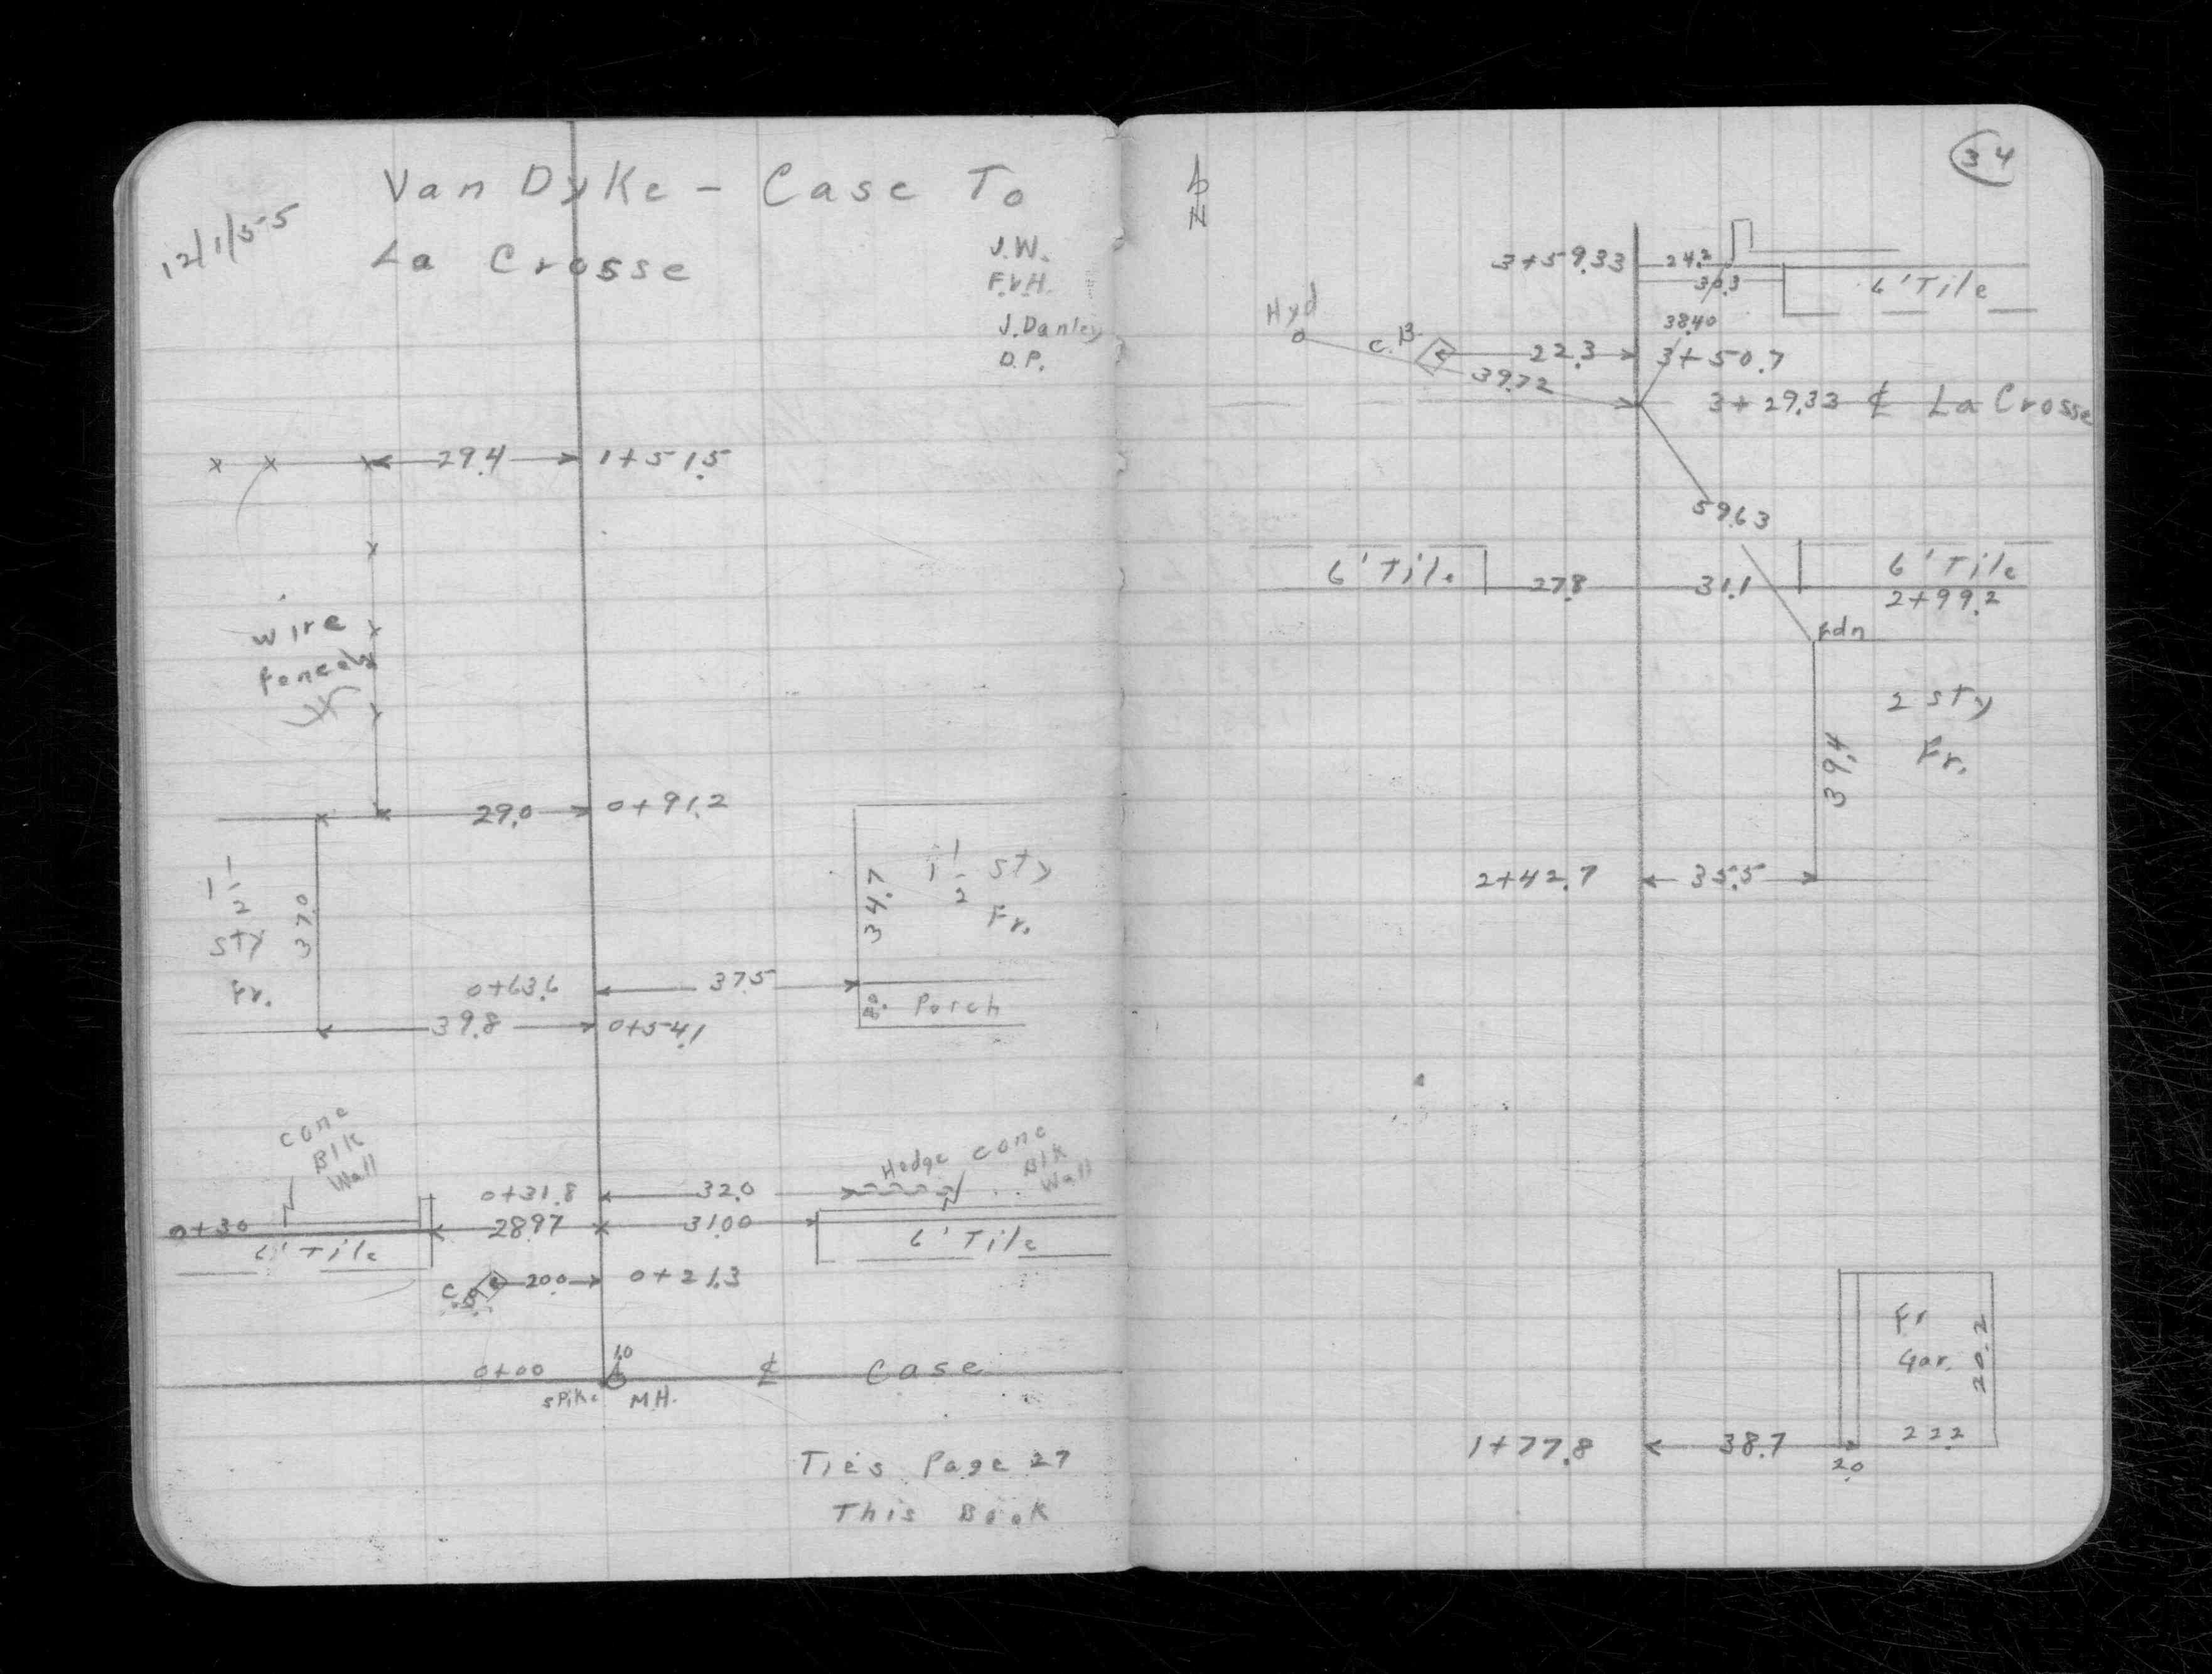 Van Dyke - Case To
La Crosse
12/1/55
J.W.
F.V.H.
J. Danley
D.P.
29.4 1+51.5
wire
fence
29.0 0+91.2
1 1/2
sty
Fr.
37.0
34.7
1 1/2 sty
Fr.
0+63.6 37.5
8.0 Porch
39.8 0+54.1
conc
Blk
Wall
Hedge conc
Blk
Wall
0+31.8 32.0
0+30 28.97 31.00
6' Tile 6' Tile
C.B. 20.0 0+21.3
1.0
0+00 ₵ Case
spike M.H.
Ties Page 27
This Book
34
N
3+59.33 24.2
30.3 6' Tile
Hyd
38.40
C.B. 22.3 3+50.7
39.72
3+29.33 ₵ La Crosse
59.63
6' Tile 27.8 31.1 6' Tile
2+99.2
Fdn
2 sty
Fr.
39.4
2+42.7 35.5
Fr
Gar.
20.2
22.2
1+77.8 38.7
2.0